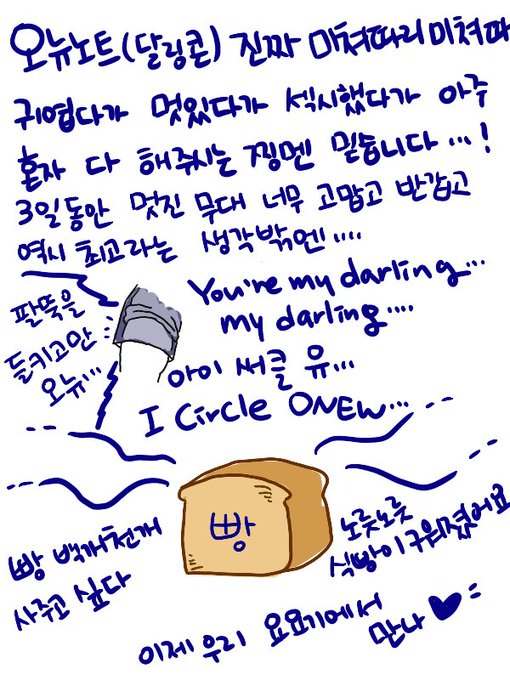 오뉴노트(달링콘) 진짜 미쳐따리미쳐따
귀엽다가 멋있다가 섹시했다가 아주
혼자 다 해주시는 찡멘 믿습니다...!
3일동안 멋진 무대 너무 고맙고 반갑고
역시 최고라는 생각밖엔....
You're my darling...
my darling....
팔뚝을
들키고만
오뉴...
아이 써클 유...
I Circle ONEW...
빵
빵 백개천개
사주고 싶다
노릇노릇
식빵이 구워졌어요
이제 우리 요요기에서
만나♥=